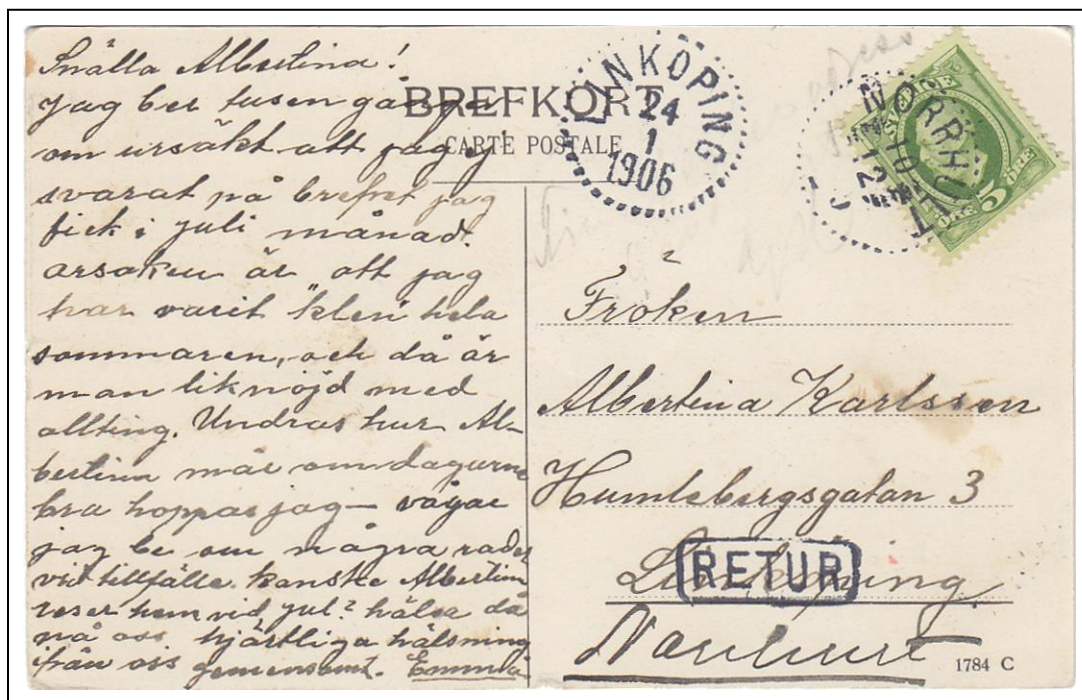 Snälla Albertina!
Jag ber tusen gånger
om ursäkt att jag ej
svarat på brefvet jag
fick i juli månad.
orsaken är att jag
har varit "klen" hela
sommaren, och då är
man liknöjd med
allting. Undras hur Al-
bertina mår om dagarne
bra hoppas jag — vågar
jag be om några rader
vid tillfälle. kanske Albertina
reser hem vid jul? hälsa då
på oss. hjärtliga hälsning
ifrån oss gemensamt. Emma
BREFKORT
CARTE POSTALE
LINKÖPING
24
1
1906
NORRHULT
SVERIGE
5 ÖRE
Fröken
Albertina Karlsson
Humlebergsgatan 3
Linköping
RETUR
Norrhult
1784 C